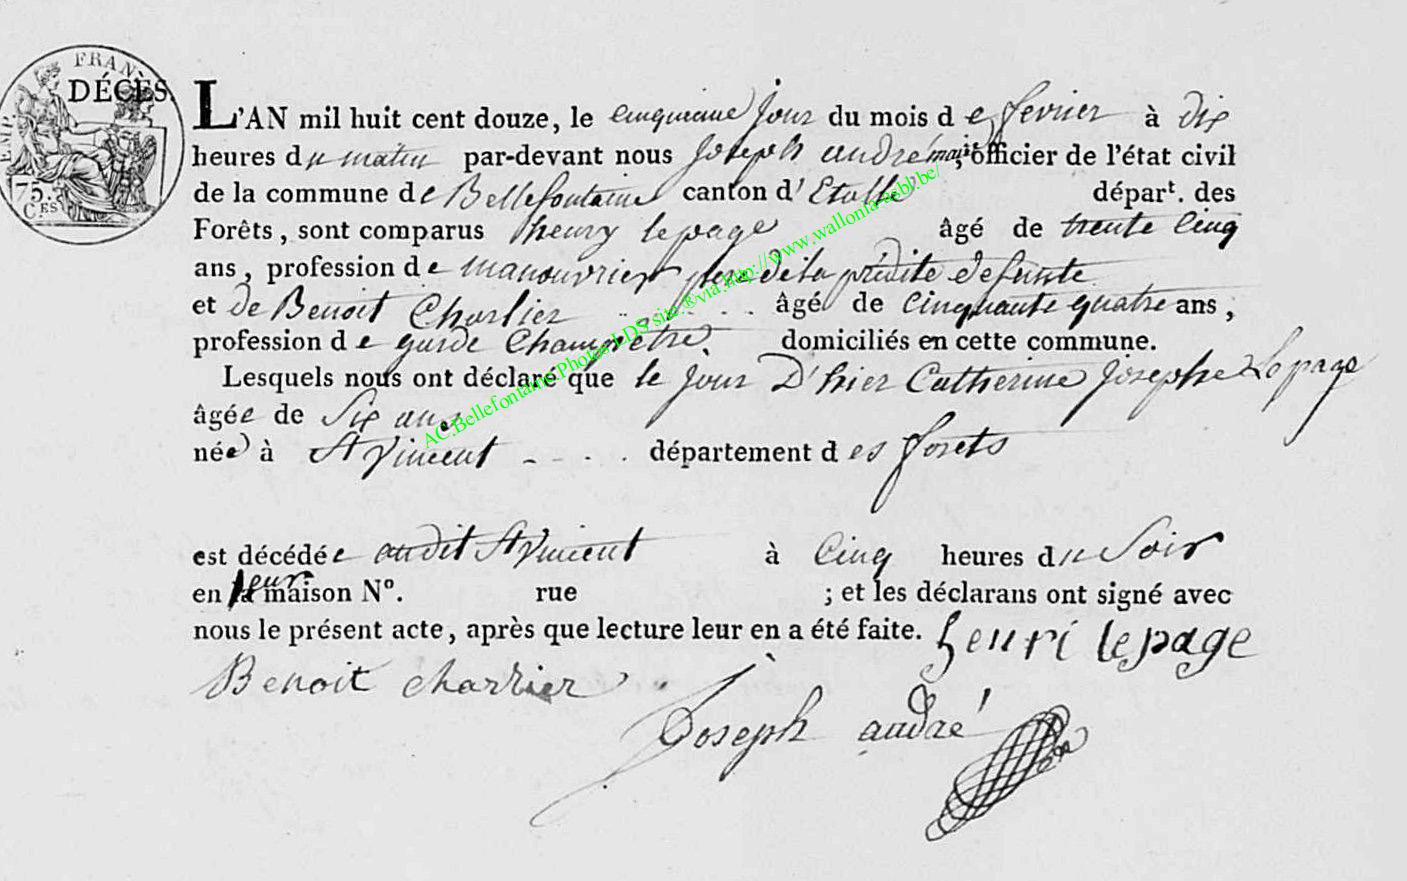 FRAN
DÉCÈS.
EMP.
75.
CES
L'AN mil huit cent douze, le cinquieme jour du mois de fevrier à dix
heures du matin par-devant nous Joseph andré maire, officier de l'état civil
de la commune de Bellefontaine canton d'Etalle départ. des
Forêts, sont comparus henry lepage âgé de trente cinq
ans, profession de manouvrier pere de la prédite defunte
et de Benoit Charlier . . . . âgé de cinquante quatre ans,
profession de garde Champetre domiciliés en cette commune.
Lesquels nous ont déclaré que le jour D'hier Catherine Josephe Lepage
âgée de Six ans
née à St Vincent - - - . département des forets
est décédée audit St Vincent à Cinq heures du Soir
en leur maison No. rue ; et les déclarans ont signé avec
nous le présent acte, après que lecture leur en a été faite. henri lepage
Benoit charlier
Joseph andré
AC.Bellefontaine Photos LDS site ®via http://www.wallonia-asbl.be/